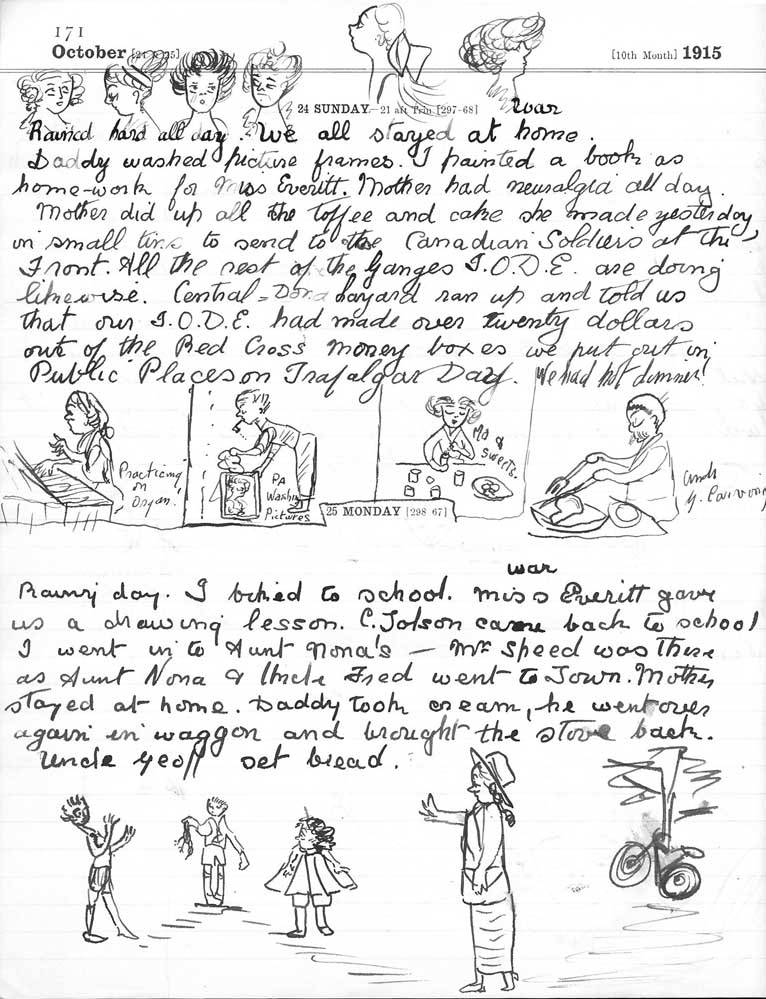 171
October [24 & 25] [10th Month] 1915
24 SUNDAY—21 aft Trin [297-68]
war
Rained hard all day. We all stayed at home.
Daddy washed picture frames. I painted a book as
home-work for Miss Everitt. Mother had neuralgia all day.
Mother did up all the toffee and cake she made yesterday
in small tins to send to the Canadian Soldiers at the
Front. All the rest of the Ganges I.O.D.E. are doing
likewise. Central - Dora Layard ran up and told us
that our I.O.D.E. had made over twenty dollars
out of the Red Cross money boxes we put out in
Public Places on Trafalgar Day. We had hot dinner!
Practicing on Organ!
PA Washing Pictures
Ma & sweets.
Uncle G. Carving
25 MONDAY [298 67]
war
Rainy day. I biked to school. Miss Everitt gave
us a drawing lesson. C. Tolson came back to school
I went in to Aunt Nona's — Mrs Speed was there
as Aunt Nona & Uncle Fred went to Town. Mother
stayed at home. Daddy took cream, he went over
again in waggon and brought the stove back.
Uncle Geoff set bread.